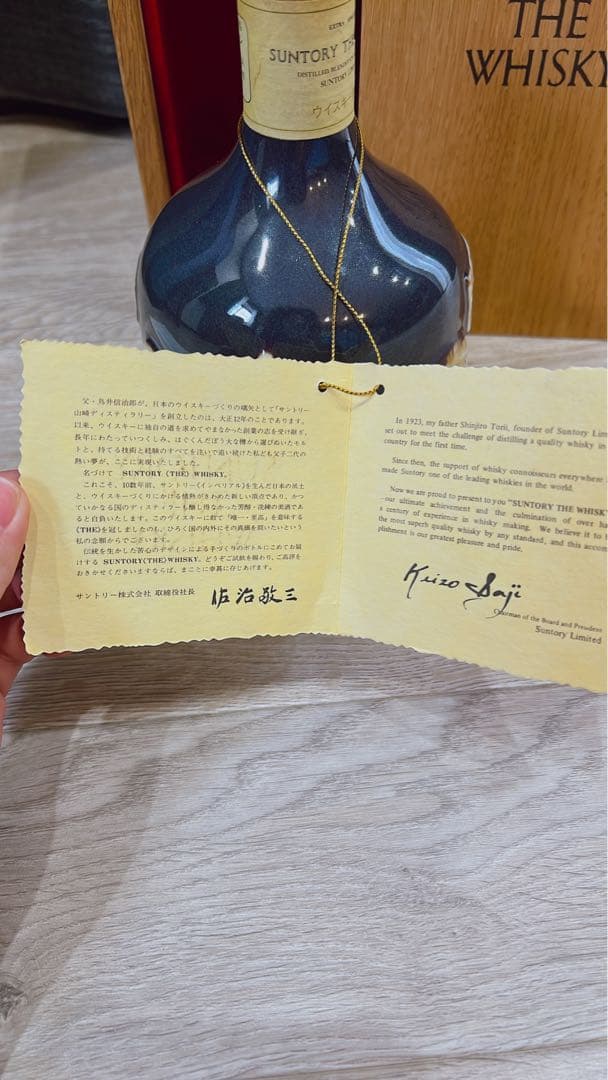 THE
WHISKY
SUNTORY THE
SUNTORY
ウイスキー
父・鳥井信治郎が、日本のウイスキーづくりの嚆矢として「サントリー
山崎ディスティラリー」を創立したのは、大正12年のことであります。
以来、ウイスキーに独自の道を求めてやまなかった創業の志を受け継ぎ、
長年にわたっていつくしみ、はぐくんだぼう大な樽から選びぬいたモル
トと、持てる技術と経験のすべてを注いで追い続けた私ども父子二代の
熱い夢が、ここに実現いたしました。
名づけて SUNTORY (THE) WHISKY。
これこそ、10数年前、サントリー(インペリアル)を生んだ日本の風土
と、ウイスキーづくりにかける情熱がきわめた新しい頂点であり、かつ
ていかなる国のディスティラーも醸し得なかった芳醇・洗練の美酒であ
ると自負いたします。このウイスキーに敢て「唯一・至高」を意味する
(THE)を冠しましたのも、ひろく国の内外にその真価を問いたいという
私の念願からでございます。
伝統を生かした苦心のデザインによる手づくりのボトルにこめてお届
けする SUNTORY(THE)WHISKY。どうぞご試飲を賜わり、ご高評を
おきかせくださいますならば、まことに幸甚に存じあげます。
サントリー株式会社 取締役社長 佐治敬三
In 1923, my father Shinjiro Torii, founder of Suntory
set out to meet the challenge of distilling a quality whisky in
country for the first time.
Since then, the support of whisky connoisseurs everywhere
made Suntory one of the leading whiskies in the world.
Now we are proud to present to you "SUNTORY THE WHISK
our ultimate achievement and the culmination of over
a century of experience in whisky making. We believe it to
the most superb quality whisky by any standard, and this
plishment is our greatest pleasure and pride.
Keizo Saji
Chairman of the Board and President
Suntory Limited